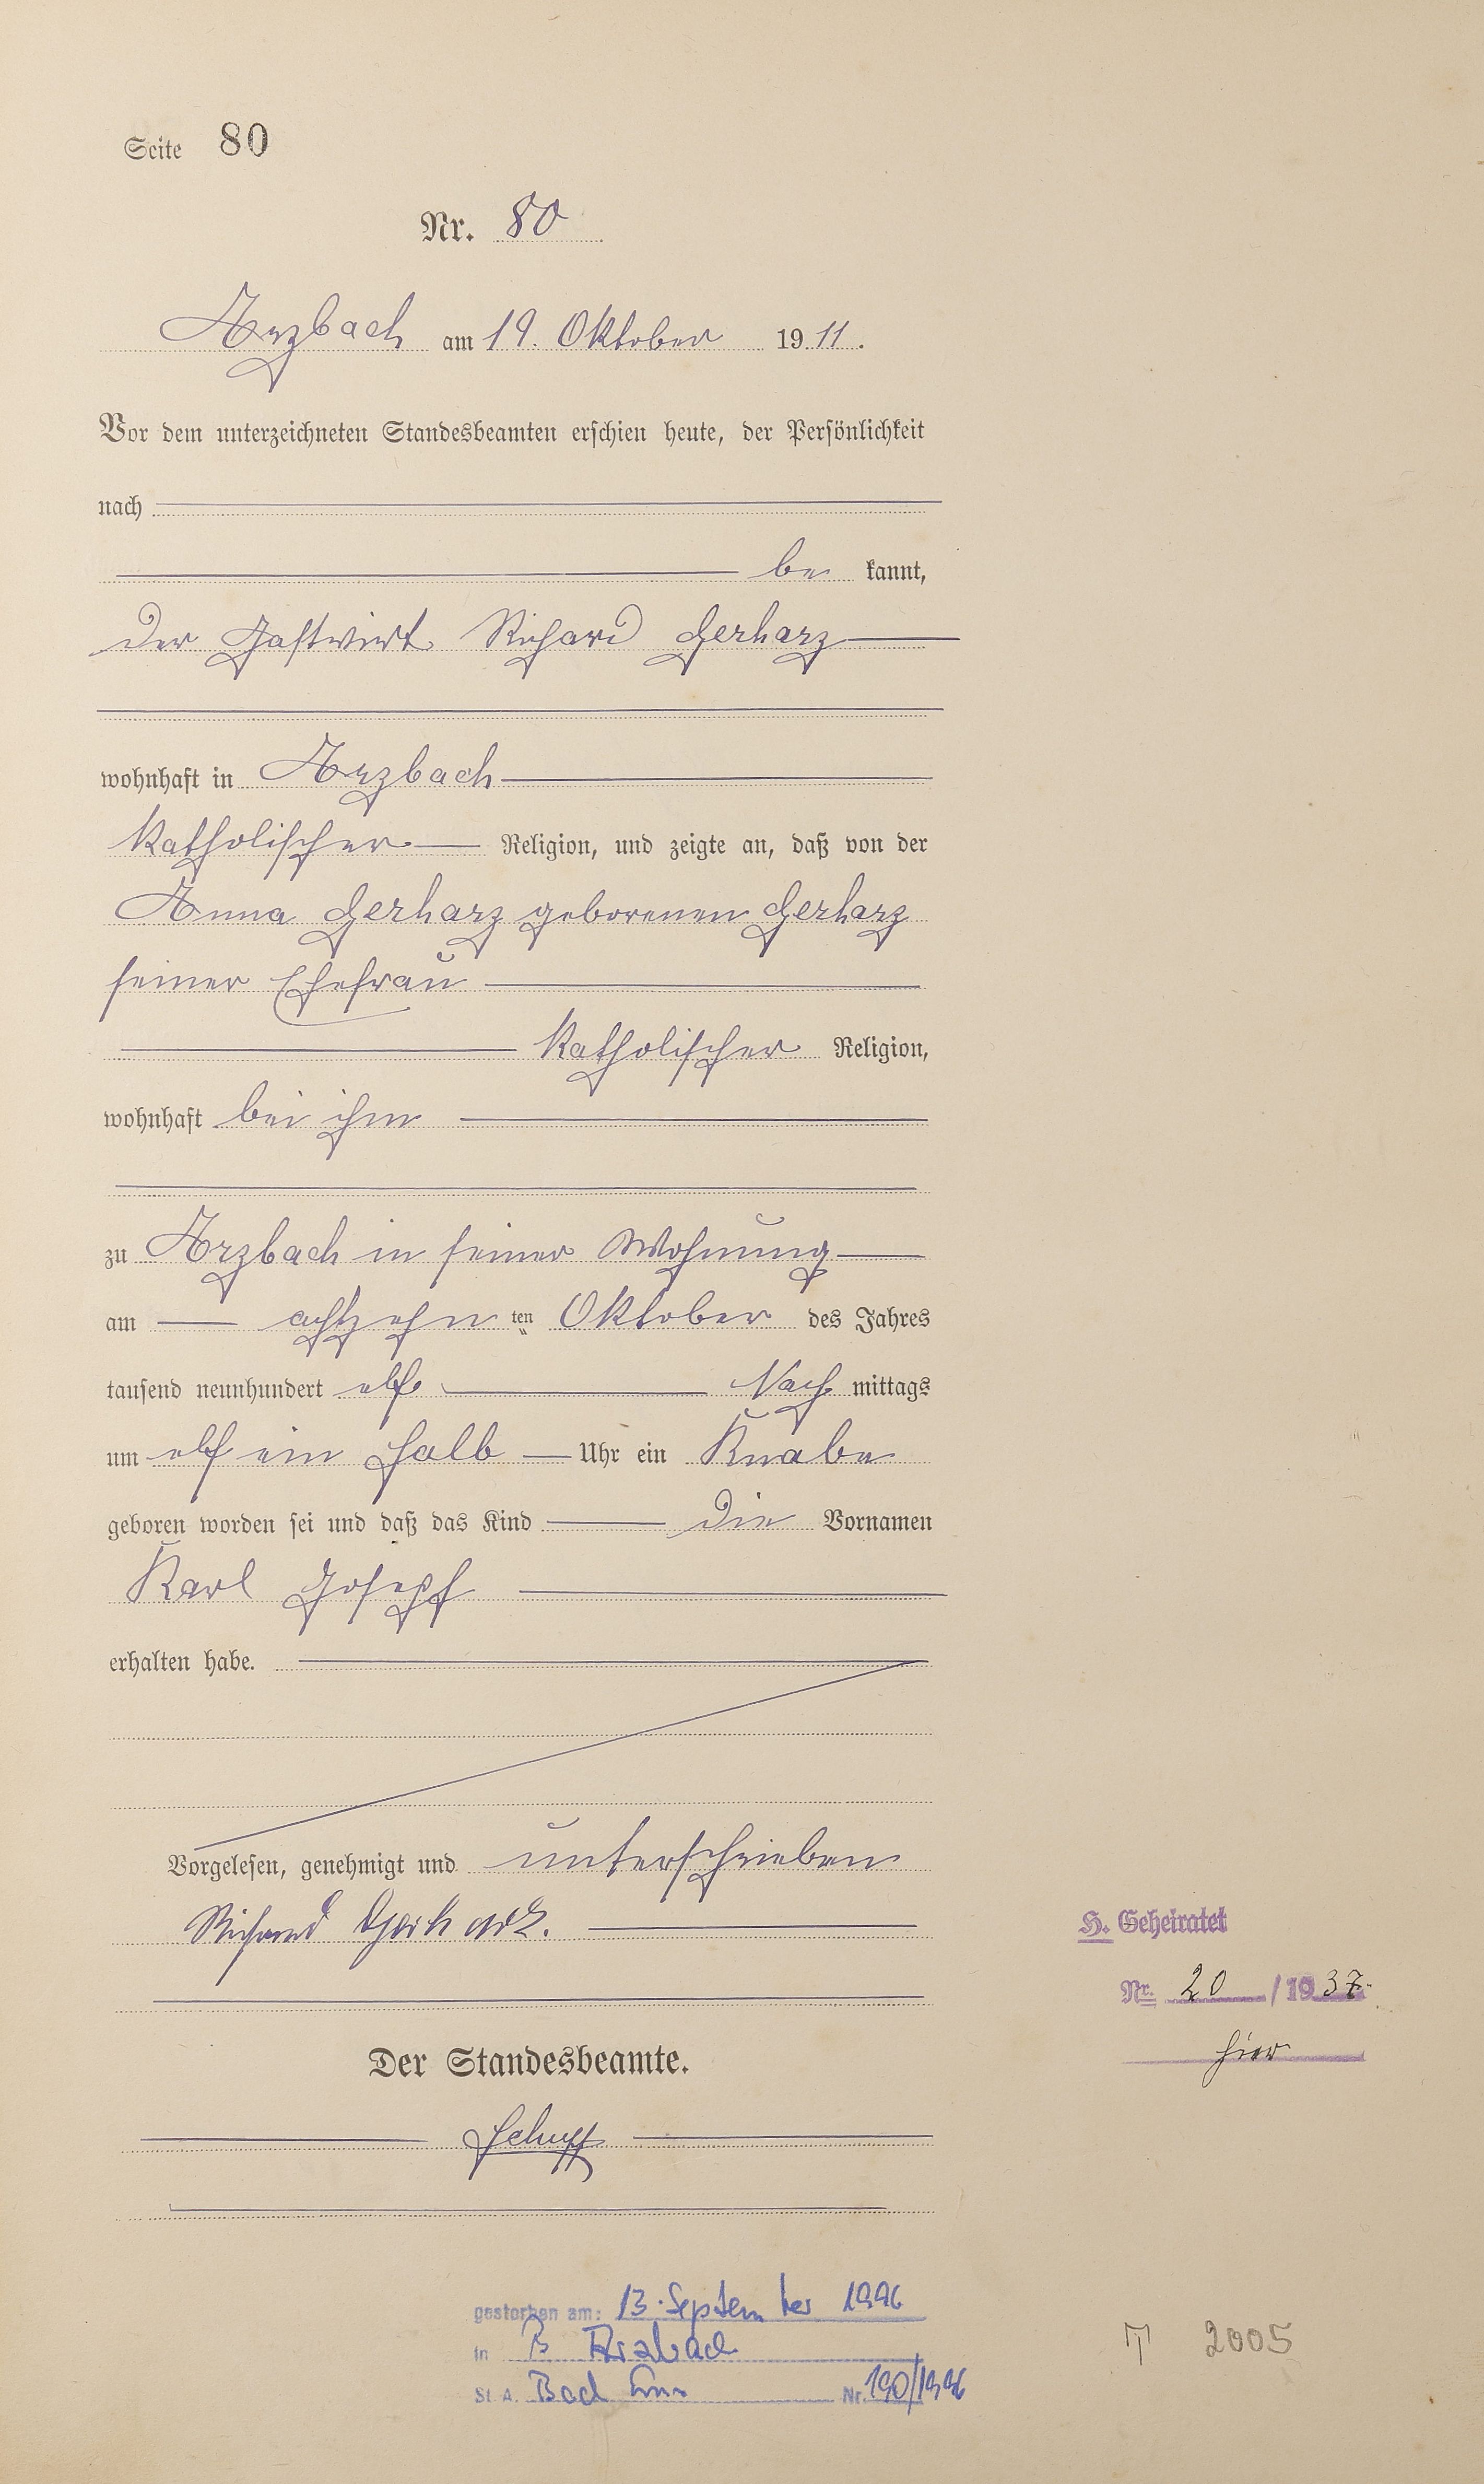 Seite 80
Nr. 80
Arzbach am 19. Oktober 1911.
Vor dem unterzeichneten Standesbeamten erschien heute, der Persönlichkeit
nach
be kannt,
der Gastwirt Richard Gerharz
wohnhaft in Arzbach
katholischer Religion, und zeigte an, daß von der
Anna Gerharz geborenen Gerharz
seiner Ehefrau
katholischer Religion,
wohnhaft bei ihm
zu Arzbach in seiner Wohnung
am achtzehn ten Oktober des Jahres
tausend neunhundert elf Nach mittags
um elf ein halb Uhr ein Knabe
geboren worden sei und daß das Kind die Vornamen
Karl Joseph
erhalten habe.
Vorgelesen, genehmigt und unterschrieben
Richard Gerharz.
H. Geheiratet
Nr. 20 / 1937
hier
Der Standesbeamte.
Schupp
gestorben am: 13. September 1996
in Arzbach
St. A. Bad Ems Nr. 190/1996
2005